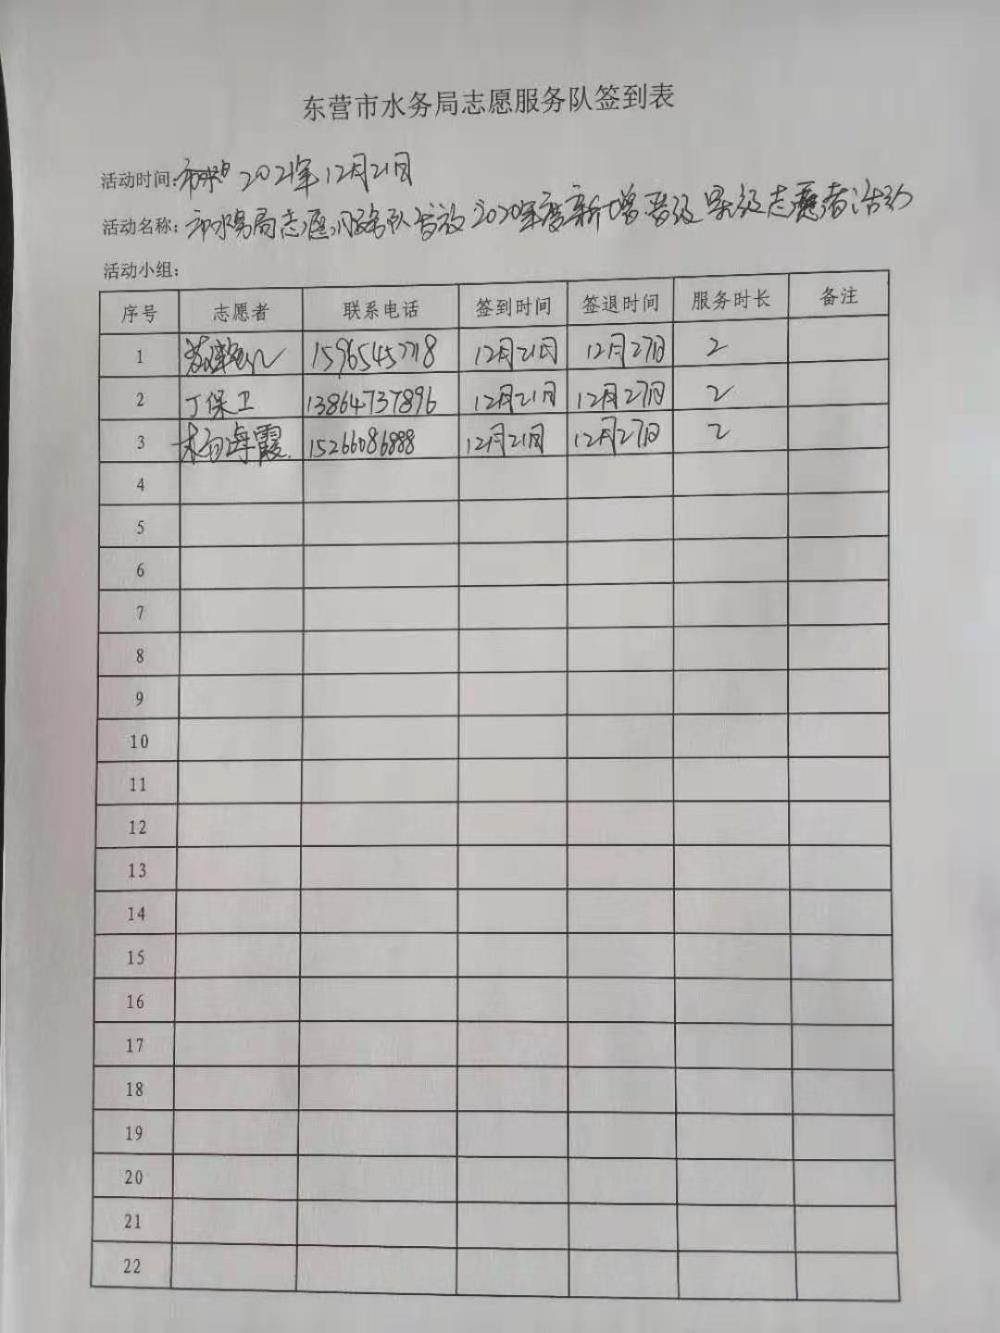 东营市水务局志愿服务队签到表
活动时间: 2021年12月21日
活动名称: 市水务局志愿服务队发放2020年度新增晋级星级志愿者活动
活动小组:
序号 志愿者 联系电话 签到时间 签退时间 服务时长 备注
1 15965457718 12月21日 12月27日 2
2 丁保卫 13864737896 12月21日 12月27日 2
3 海霞 15266086888 12月21日 12月27日 2
4
5
6
7
8
9
10
11
12
13
14
15
16
17
18
19
20
21
22